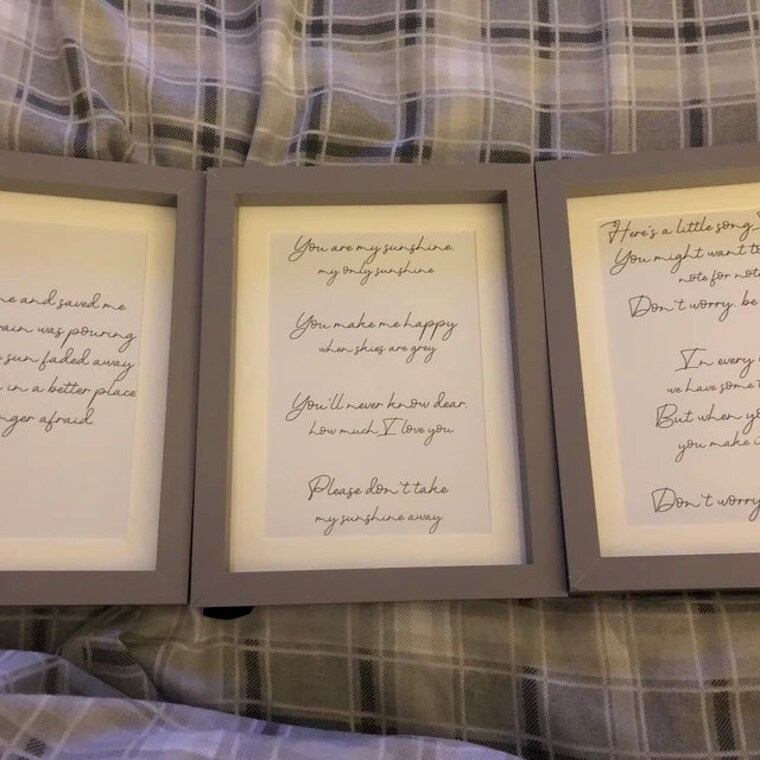 and saved me
was pouring
sun faded away
in a better place
afraid.
You are my sunshine,
my only sunshine
You make me happy
when skies are grey
You'll never know dear,
how much I love you
Please don't take
my sunshine away
Here's a little song
You might want to
note for note
Don't worry, be
In every
we have some
But when you
you make it
Don't worry